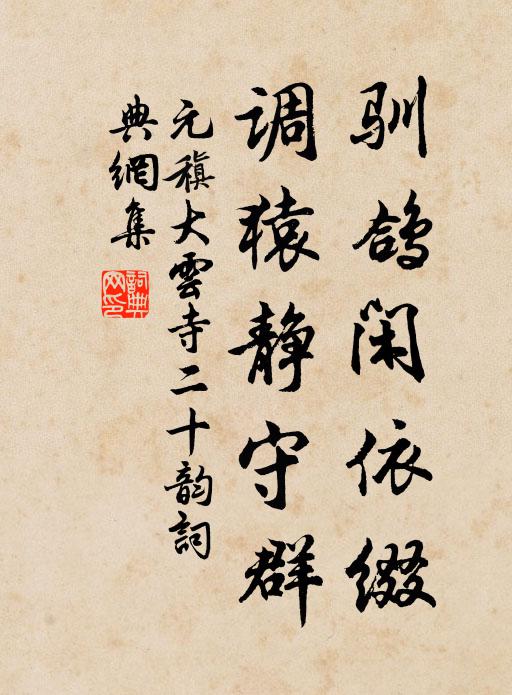 驯鸽闲依缀
调猿静守群
元稹大雲寺二十韵詞
典網集
詞典网印